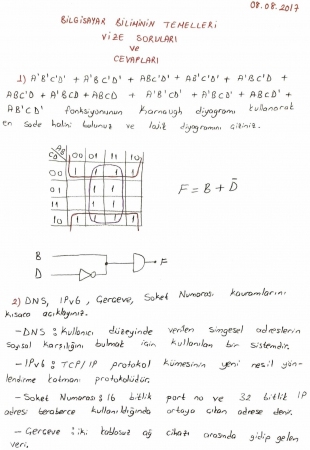 08.08.2017
BİLGİSAYAR BİLİMİNİN TEMELLERİ
VİZE SORULARI
ve
CEVAPLARI
1) A'B'C'D' + A'BC'D' + ABC'D' + AB'C'D' + A'BC'D +
ABC'D + A'BCD + ABCD + A'B'CD' + A'BCD' + ABCD' +
AB'CD' fonksiyonunun Karnaugh diyagramı kullanarak
en sade halini bulunuz ve lojik diyagramını çiziniz.
AB
CD 00 01 11 10
00 1 1 1 1
01 1 1
11 1 1
10 1 1 1 1
F = B + D̄
B
D
F
2) DNS, IPv6, Çerçeve, Soket Numarası kavramlarını
kısaca açıklayınız.
- DNS : Kullanıcı düzeyinde verilen simgesel adreslerin
sayısal karşılığını bulmak için kullanılan bir sistemdir.
- IPv6 : TCP/IP protokol kümesinin yeni nesil yön-
lendirme katmanı protokolüdür.
- Soket Numarası : 16 bitlik port no ve 32 bitlik IP
adresi beraberce kullanıldığında ortaya çıkan adrese denir.
- Çerçeve : iki kablosuz ağ cihazı arasında gidip gelen
veri.